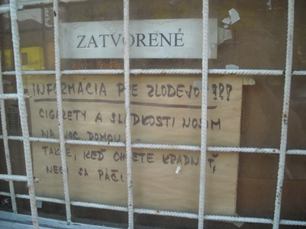 ZATVORENÉ
INFORMÁCIA PRE ZLODEJOV !!!
CIGARETY A SLADKOSTI NOSÍM
NA NOC DOMOV.
TAKŽE, KEĎ CHCETE KRADNÚŤ,
NECH SA PÁČI.